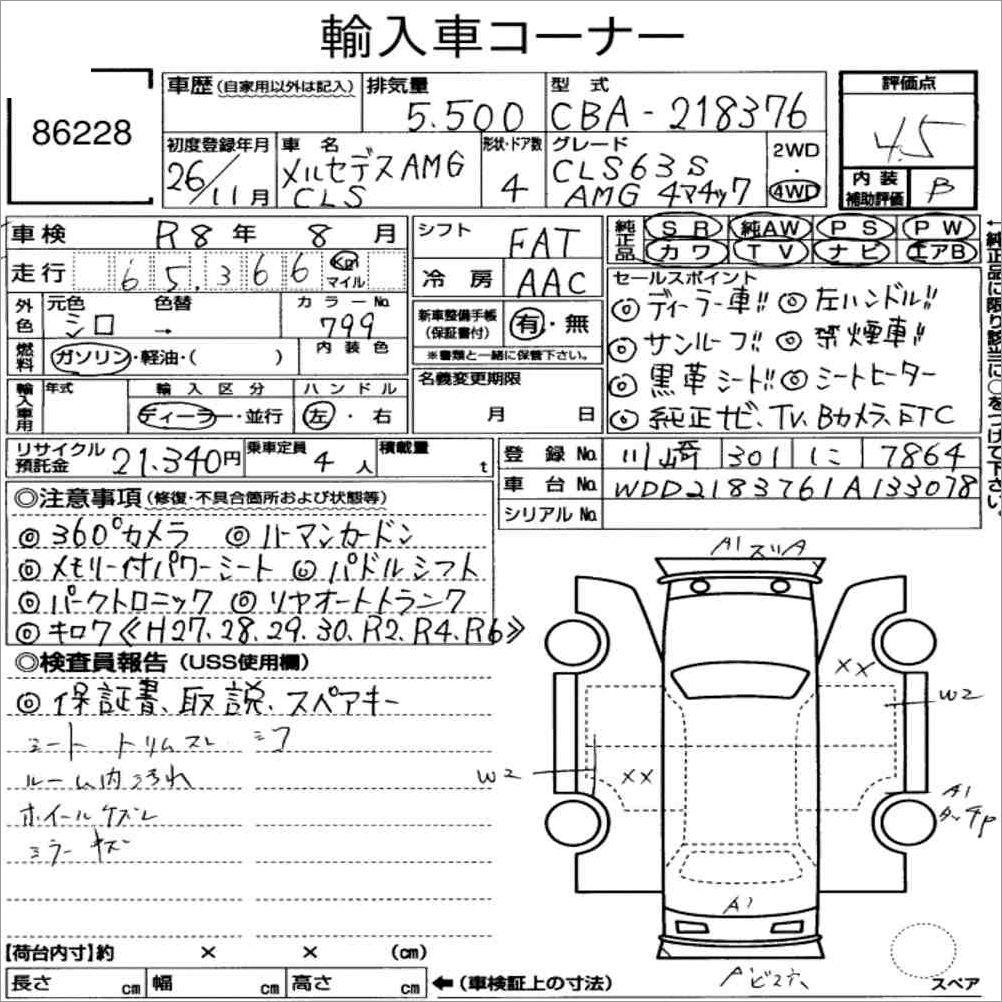 輸入車コーナー
86228
車歴(自家用以外は記入) 排気量 5.500 型式 CBA-218376 評価点 4.5
初度登録年月 26/11月 車名 メルセデスAMG CLS 形状・ドア数 4 グレード CLS63S AMG 4マチック 2WD・4WD 内装補助評価 B
車検 R8年 8月 シフト FAT 純正品 SR 純AW PS PW
走行 65,366 Km マイル 冷房 AAC カワ TV ナビ エアB
←純正品に限り該当に○をつけて下さい。
外色 元色 シロ 色替 → カラーNo. 799
燃料 ガソリン・軽油・( ) 内装色
新車整備手帳(保証書付) 有・無
※書類と一緒に保管下さい。
セールスポイント
◎ディーラー車!! ◎左ハンドル!!
◎サンルーフ!! ◎禁煙車!!
◎黒革シート!! ◎シートヒーター
◎純正ナビ、TV、Bカメラ、ETC
輸入車用 年式 輸入区分 ディーラー・並行 ハンドル 左・右
名義変更期限 月 日
リサイクル預託金 21.340円 乗車定員 4人 積載量 t
登録No. 川崎 301 に 7864
車台No. WDD2183761A133078
シリアルNo.
◎注意事項(修復・不具合箇所および状態等)
◎360°カメラ ◎ハーマンカードン
◎メモリー付パワーシート ◎パドルシフト
◎パークトロニック ◎リヤオートトランク
◎キロク《H27、28、29、30、R2、R4、R6》
◎検査員報告(USS使用欄)
◎保証書、取説、スペアキー
シート、トリムスレ、シワ
ルーム内汚れ
ホイールケズレ
ミラーキズ
A1スリA
XX
W2
W2
XX
A1
タッチP
A1
スペア
【荷台内寸】約 × × (cm)
長さ cm 幅 cm 高さ cm ←(車検証上の寸法)